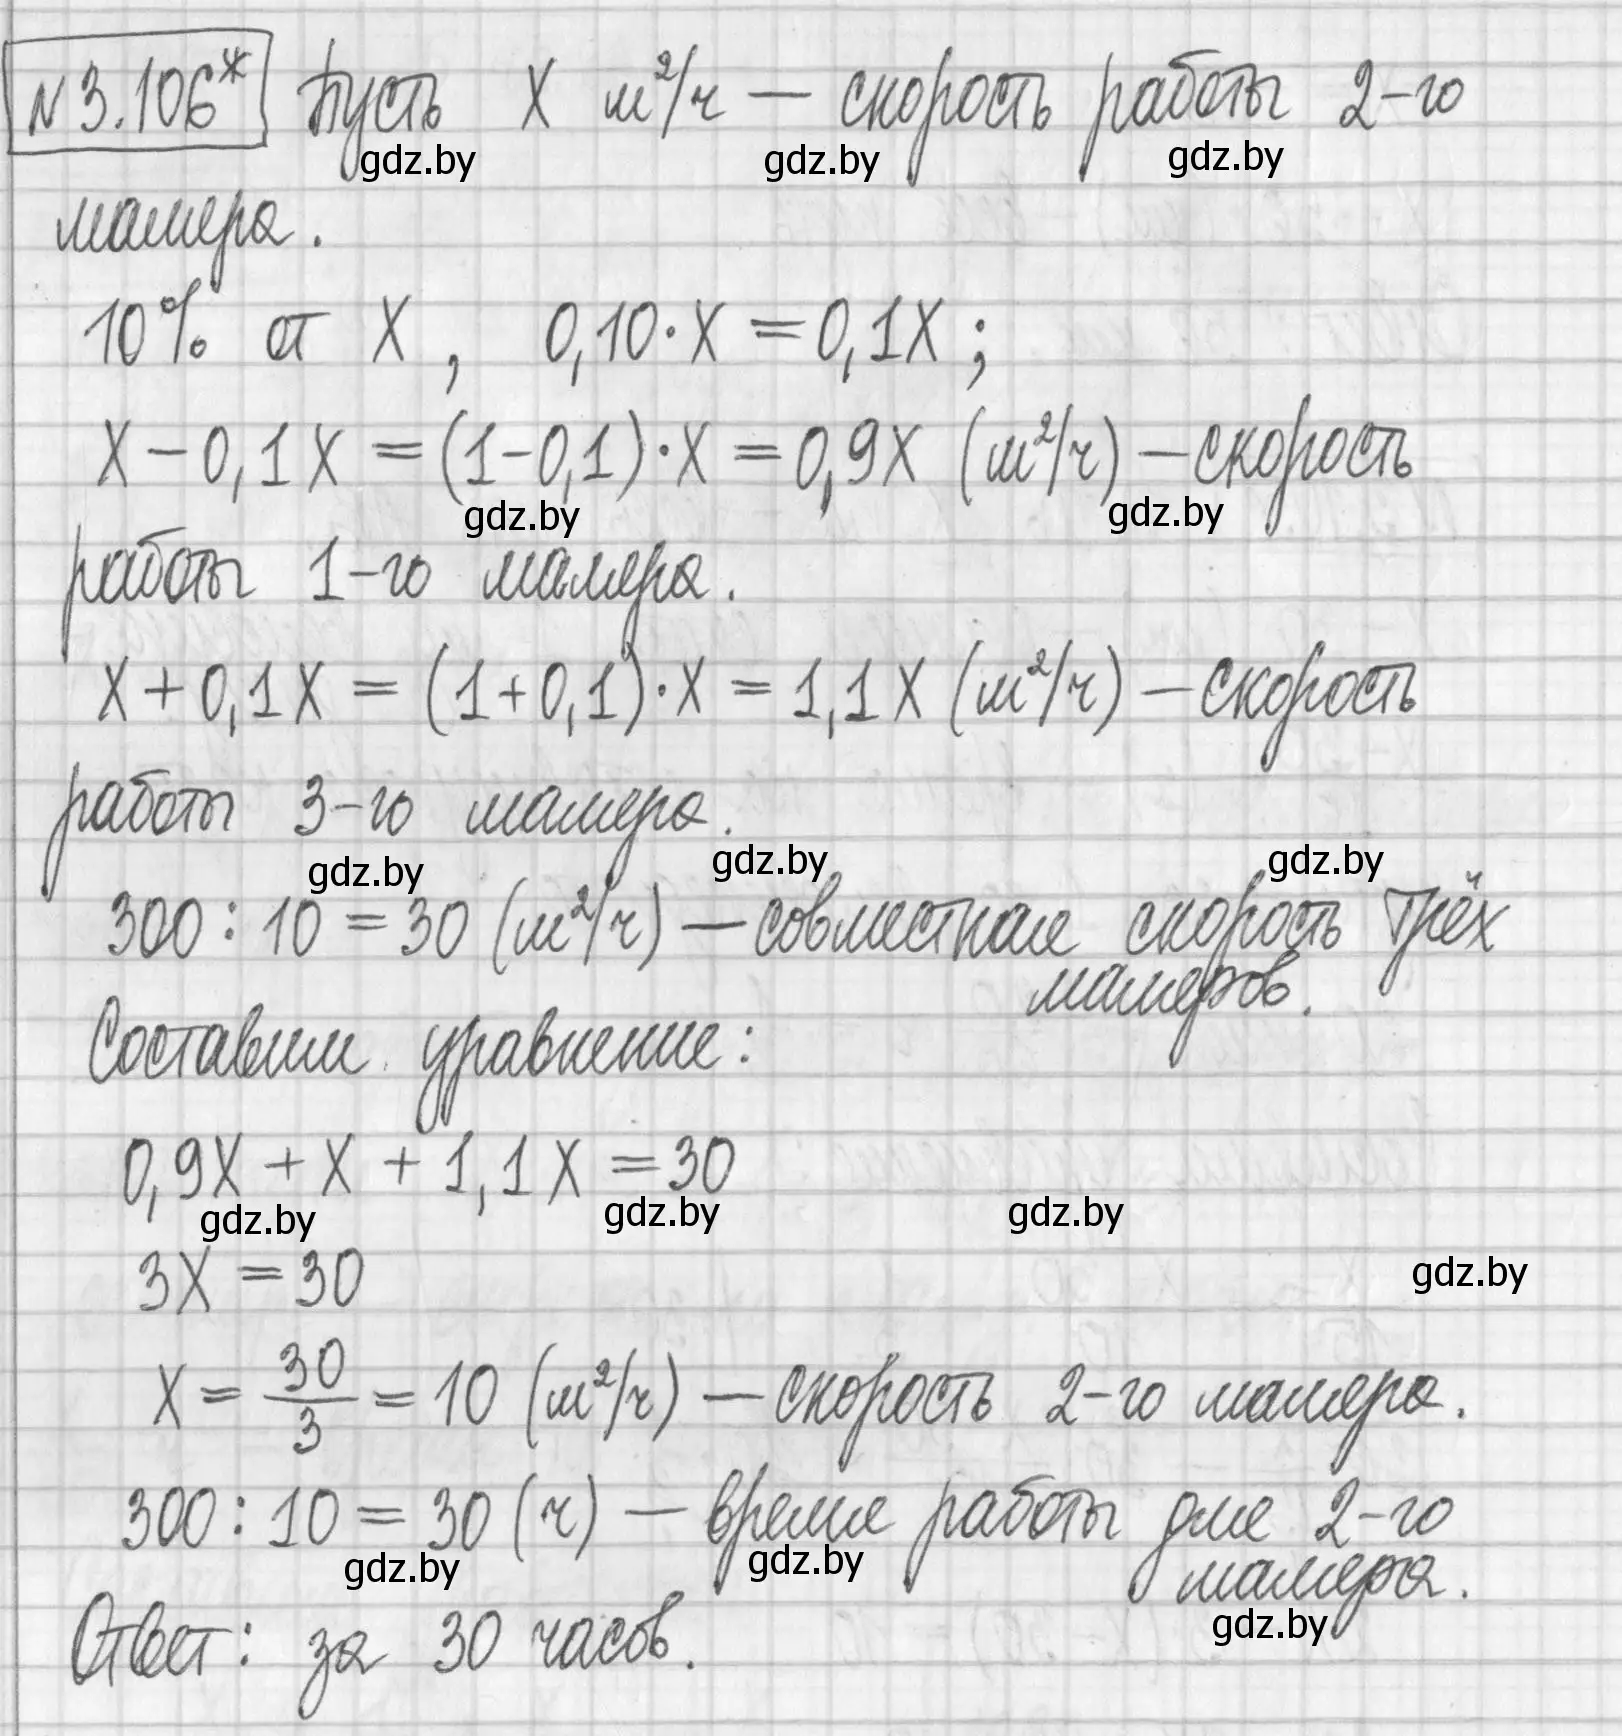 № 3.106* Пусть x м²/ч — скорость работы 2-го
gdz.by gdz.by gdz.by
маляра.
10% от x, 0,10·x = 0,1x;
x − 0,1x = (1−0,1)·x = 0,9x (м²/ч) — скорость
gdz.by gdz.by
работы 1-го маляра.
x + 0,1x = (1+0,1)·x = 1,1x (м²/ч) — скорость
работы 3-го маляра.
gdz.by gdz.by gdz.by
300 : 10 = 30 (м²/ч) — совместная скорость трёх
маляров.
Составим уравнение:
0,9x + x + 1,1x = 30
gdz.by gdz.by gdz.by
3x = 30
gdz.by
x = 30/3 = 10 (м²/ч) — скорость 2-го маляра.
300 : 10 = 30 (ч) — время работы для 2-го
gdz.by gdz.by
маляра.
gdz.by
Ответ: за 30 часов.